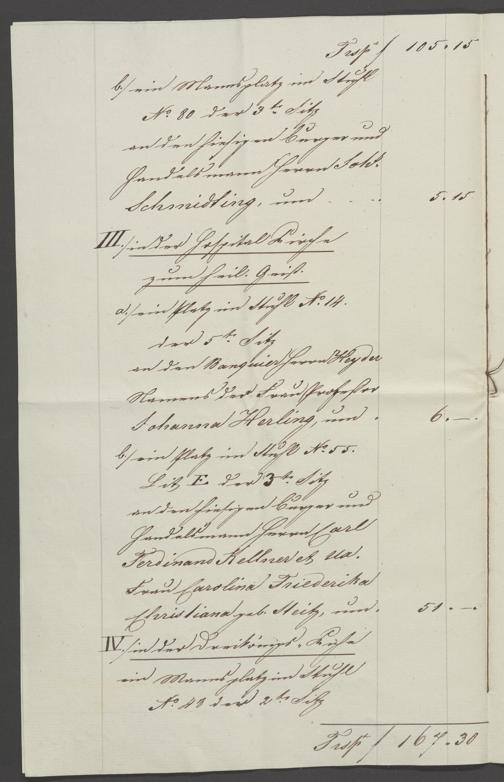 Trsp f 105.15
b./ ein Mannsplatz im Stuhl
No 80 der 3te Sitz
an den hiesigen Burger und
Handelsmann Herrn Joh.
Schmidling, um . . . 5.15
III./ in der Hospital Kirche
zum heil. Geist.
a./ ein Platz im Stuhl No 14.
der 5te Sitz
an den Banquier Herrn Heyder
Namens der Frau Professor
Johanna Herling, um . 6.—.
b./ ein Platz im Stuhl No 55.
Lit. E. der 3te Sitz
an den hiesigen Burger und
Handelsmann Herrn Carl
Ferdinand Kellner et ux.
Frau Carolina Friederika
Christiana geb. Steitz, um . 51.—.
IV./ in der Dreikönigs-Kirche
ein Mannsplatz im Stuhl
No 49 der 2te Sitz
Trsp f 167.30